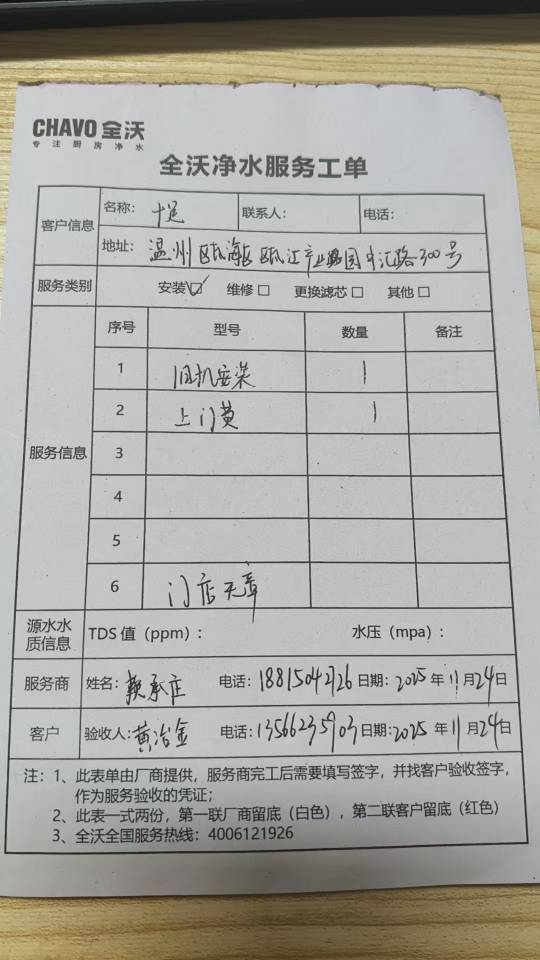 CHAVO 全沃
专注厨房净水
全沃净水服务工单
客户信息
名称: 十足 联系人: 电话:
地址: 温州瓯海区瓯江产业园中汇路300号
服务类别 安装☑ 维修□ 更换滤芯□ 其他□
服务信息
序号 型号 数量 备注
1 旧机安装 1
2 上门费 1
3
4
5
6 门店无章
源水水质信息 TDS 值（ppm）: 水压（mpa）:
服务商 姓名: 承庄 电话: 18815042726 日期: 2025 年 11 月 24 日
客户 验收人: 黄冶金 电话: 13566235903 日期: 2025 年 11 月 24 日
注：1、此表单由厂商提供，服务商完工后需要填写签字，并找客户验收签字，
作为服务验收的凭证；
2、此表一式两份，第一联厂商留底（白色），第二联客户留底（红色）
3、全沃全国服务热线：4006121926